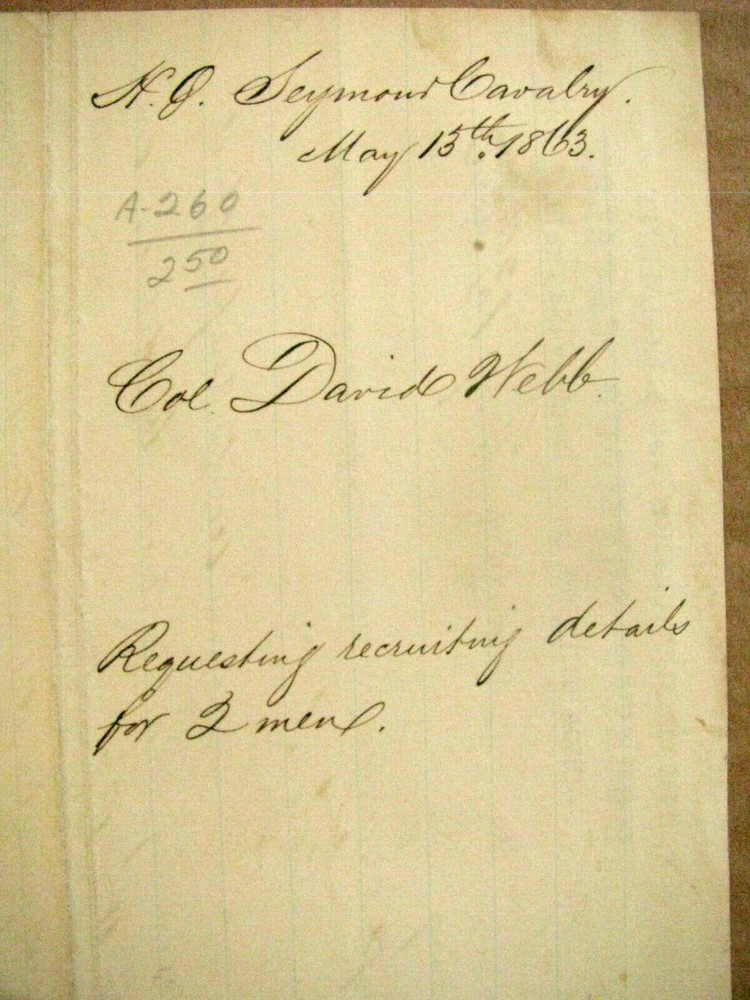 H. Q. Seymour Cavalry.
May 15th. 1863.
A-260
250
Col. David Webb.
Requesting recruiting details
for 2 men.